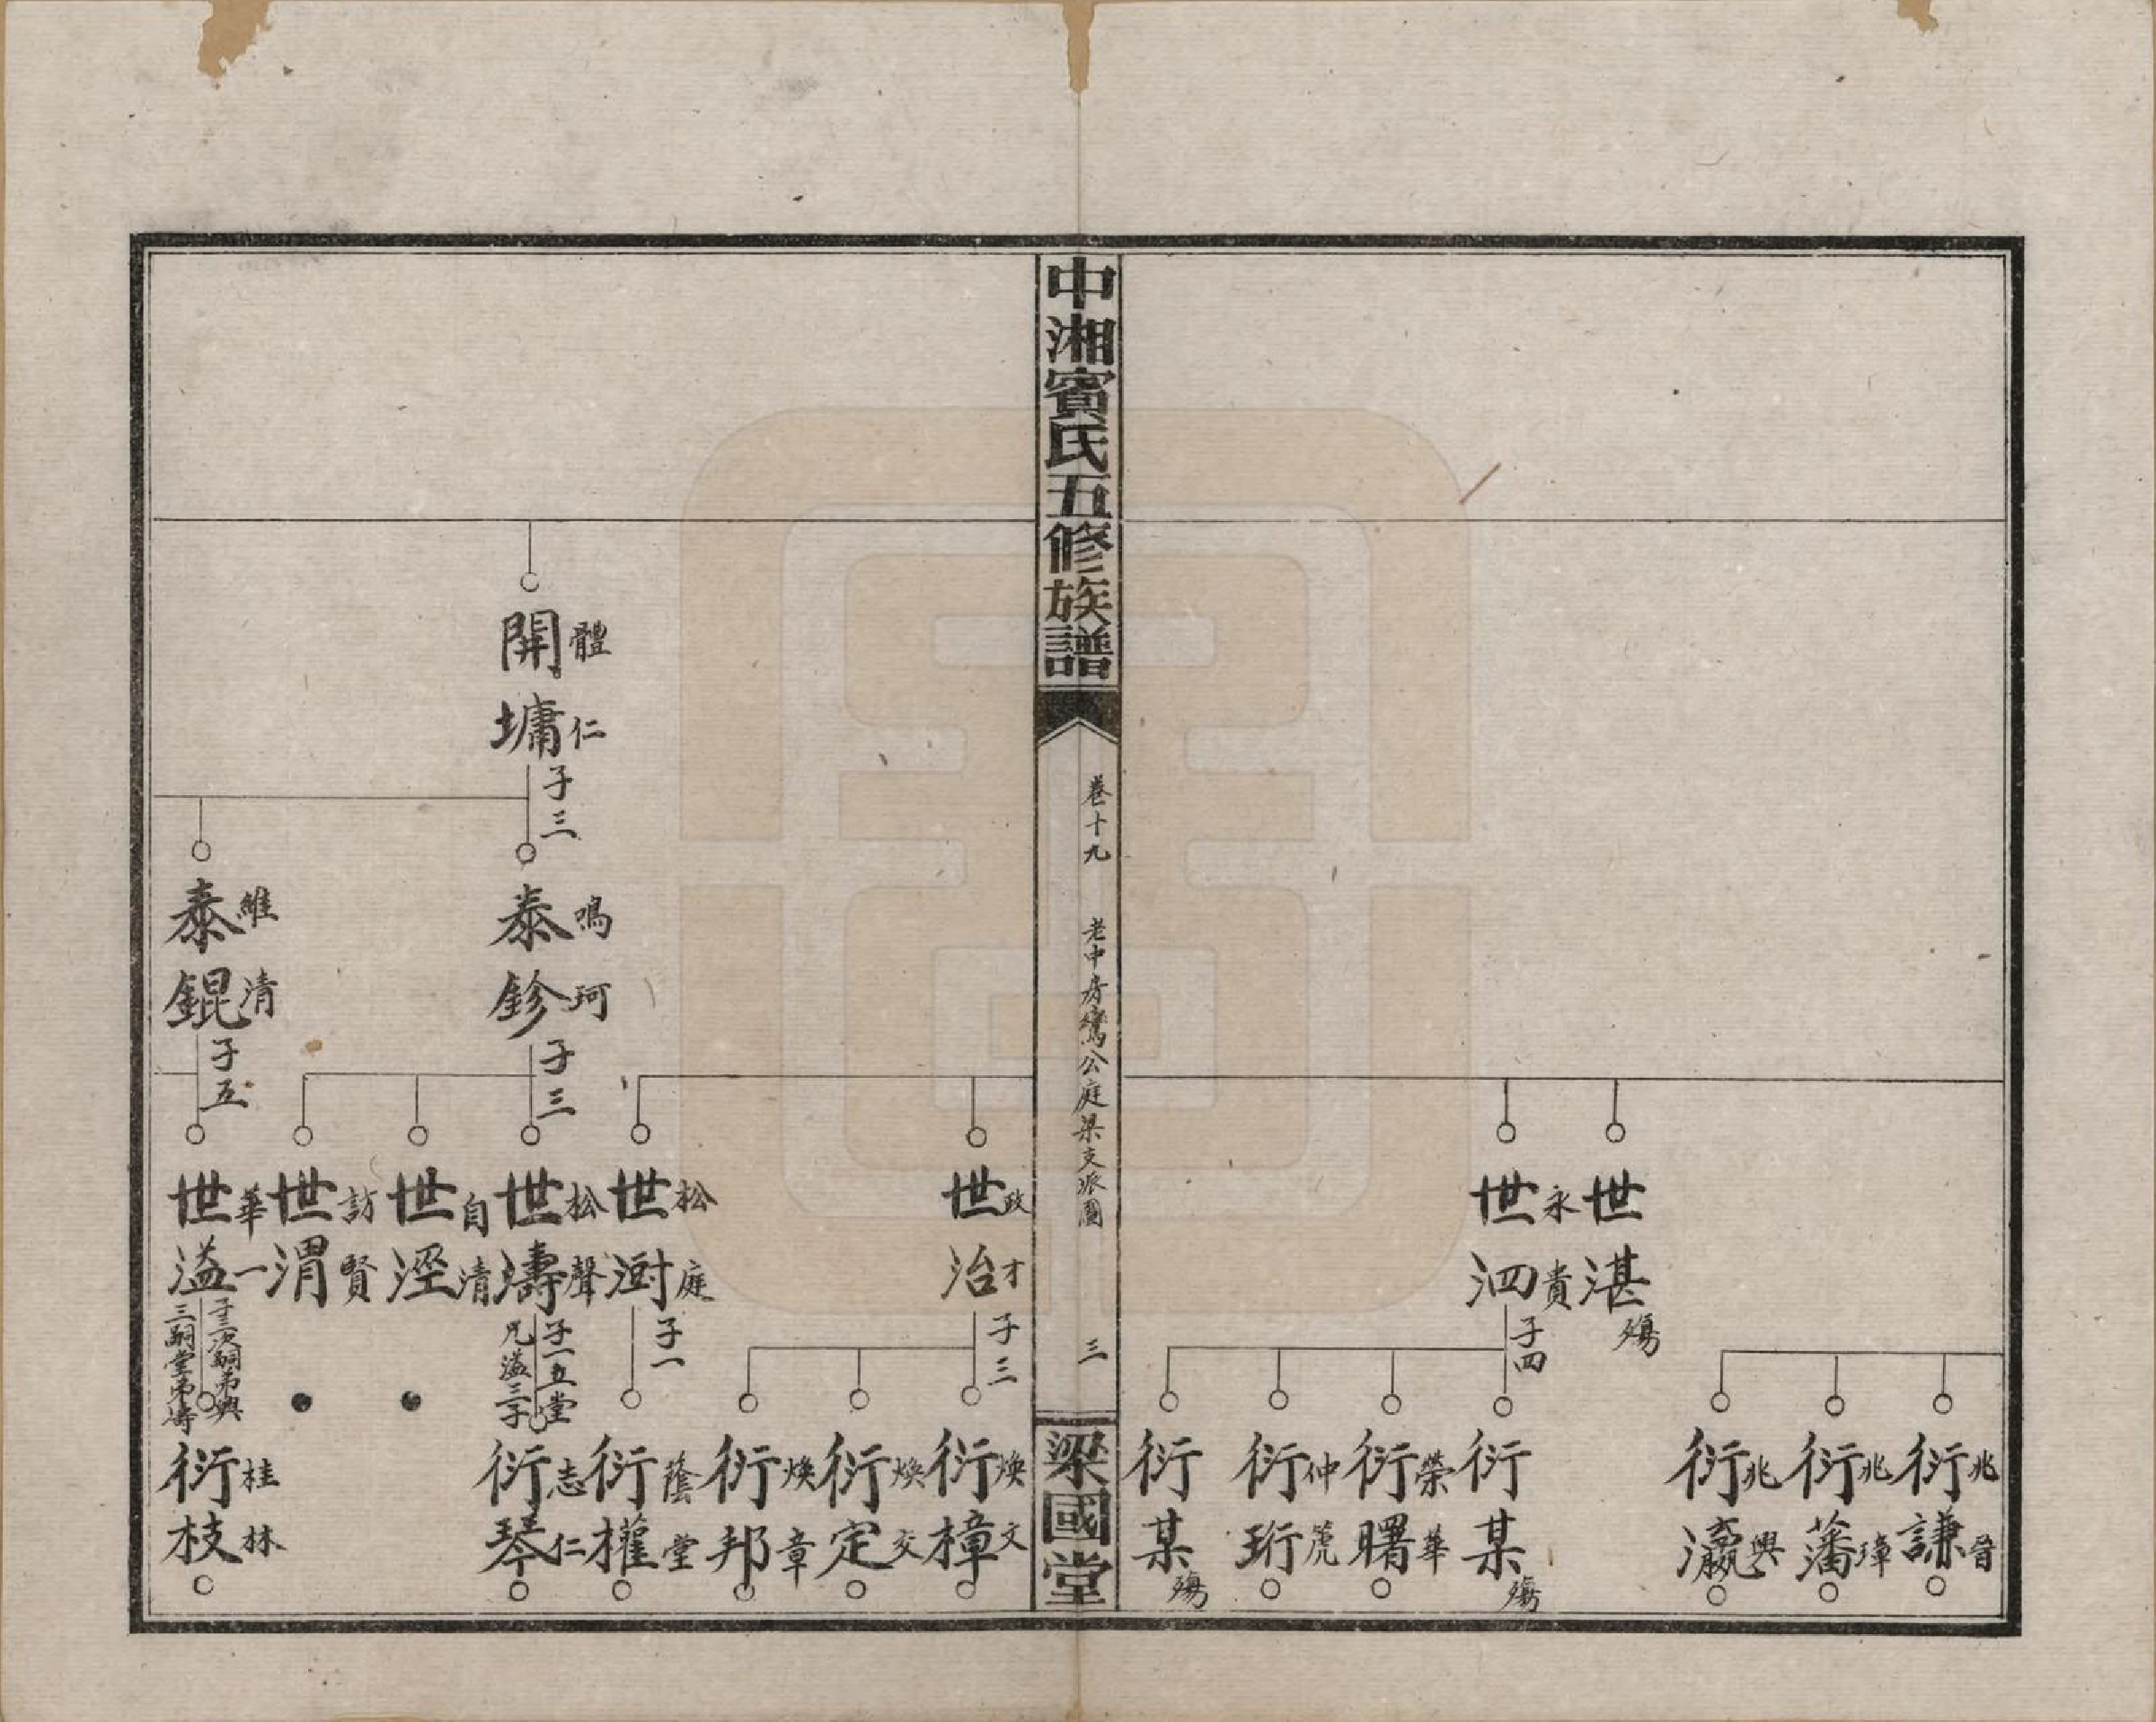 世湛
殤
世泗
永貴
子四
衍謙
兆晉
衍藩
兆璋
衍瀛
兆興
衍某
殤
衍曙
榮華
衍珩
仲箎
衍某
殤
中湘賓氏五修族譜
卷十九
老中房鸞公庭梁支派圖
三
梁國堂
世治
政才
子三
衍樟
煥文
衍定
煥交
衍邦
煥章
世澍
松庭
子一
衍權
蔭堂
開墉
體仁
子三
泰鉁
鳴珂
子三
世濤
松聲
子一立堂
兄溢三子
衍琴
志仁
世涇
自清
世渭
訪賢
泰錕
維清
子五
世溢
華一
子三次嗣弟興
三嗣堂弟濤
衍枝
桂林